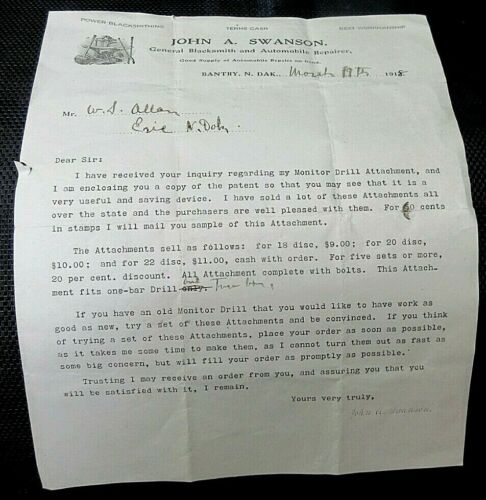 POWER BLACKSMITHING TERMS CASH BEST WORKMANSHIP
JOHN A. SWANSON.
General Blacksmith and Automobile Repairer.
Good Supply of Automobile Repairs on hand.
BANTRY, N. DAK., March 19th 1918
Mr. W. S. Allan
Eric N. Dak.
Dear Sir:
I have received your inquiry regarding my Monitor Drill Attachment, and
I am enclosing you a copy of the patent so that you may see that it is a
very useful and saving device. I have sold a lot of these Attachments all
over the state and the purchasers are well pleased with them. For cents
in stamps I will mail you sample of this Attachment.
The Attachments sell as follows: for 18 disc, $9.00; for 20 disc,
$10.00; and for 22 disc, $11.00, cash with order. For five sets or more,
20 per cent. discount. All Attachment complete with bolts. This Attach-
ment fits one-bar Drill only. and Two bar,
If you have an old Monitor Drill that you would like to have work as
good as new, try a set of these Attachments and be convinced. If you think
of trying a set of these Attachments, place your order as soon as possible,
as it takes me some time to make them, as I cannot turn them out as fast as
some big concern, but will fill your order as promptly as possible.
Trusting I may receive an order from you, and assuring you that you
will be satisfied with it, I remain.
Yours very truly,
John A. Swanson.